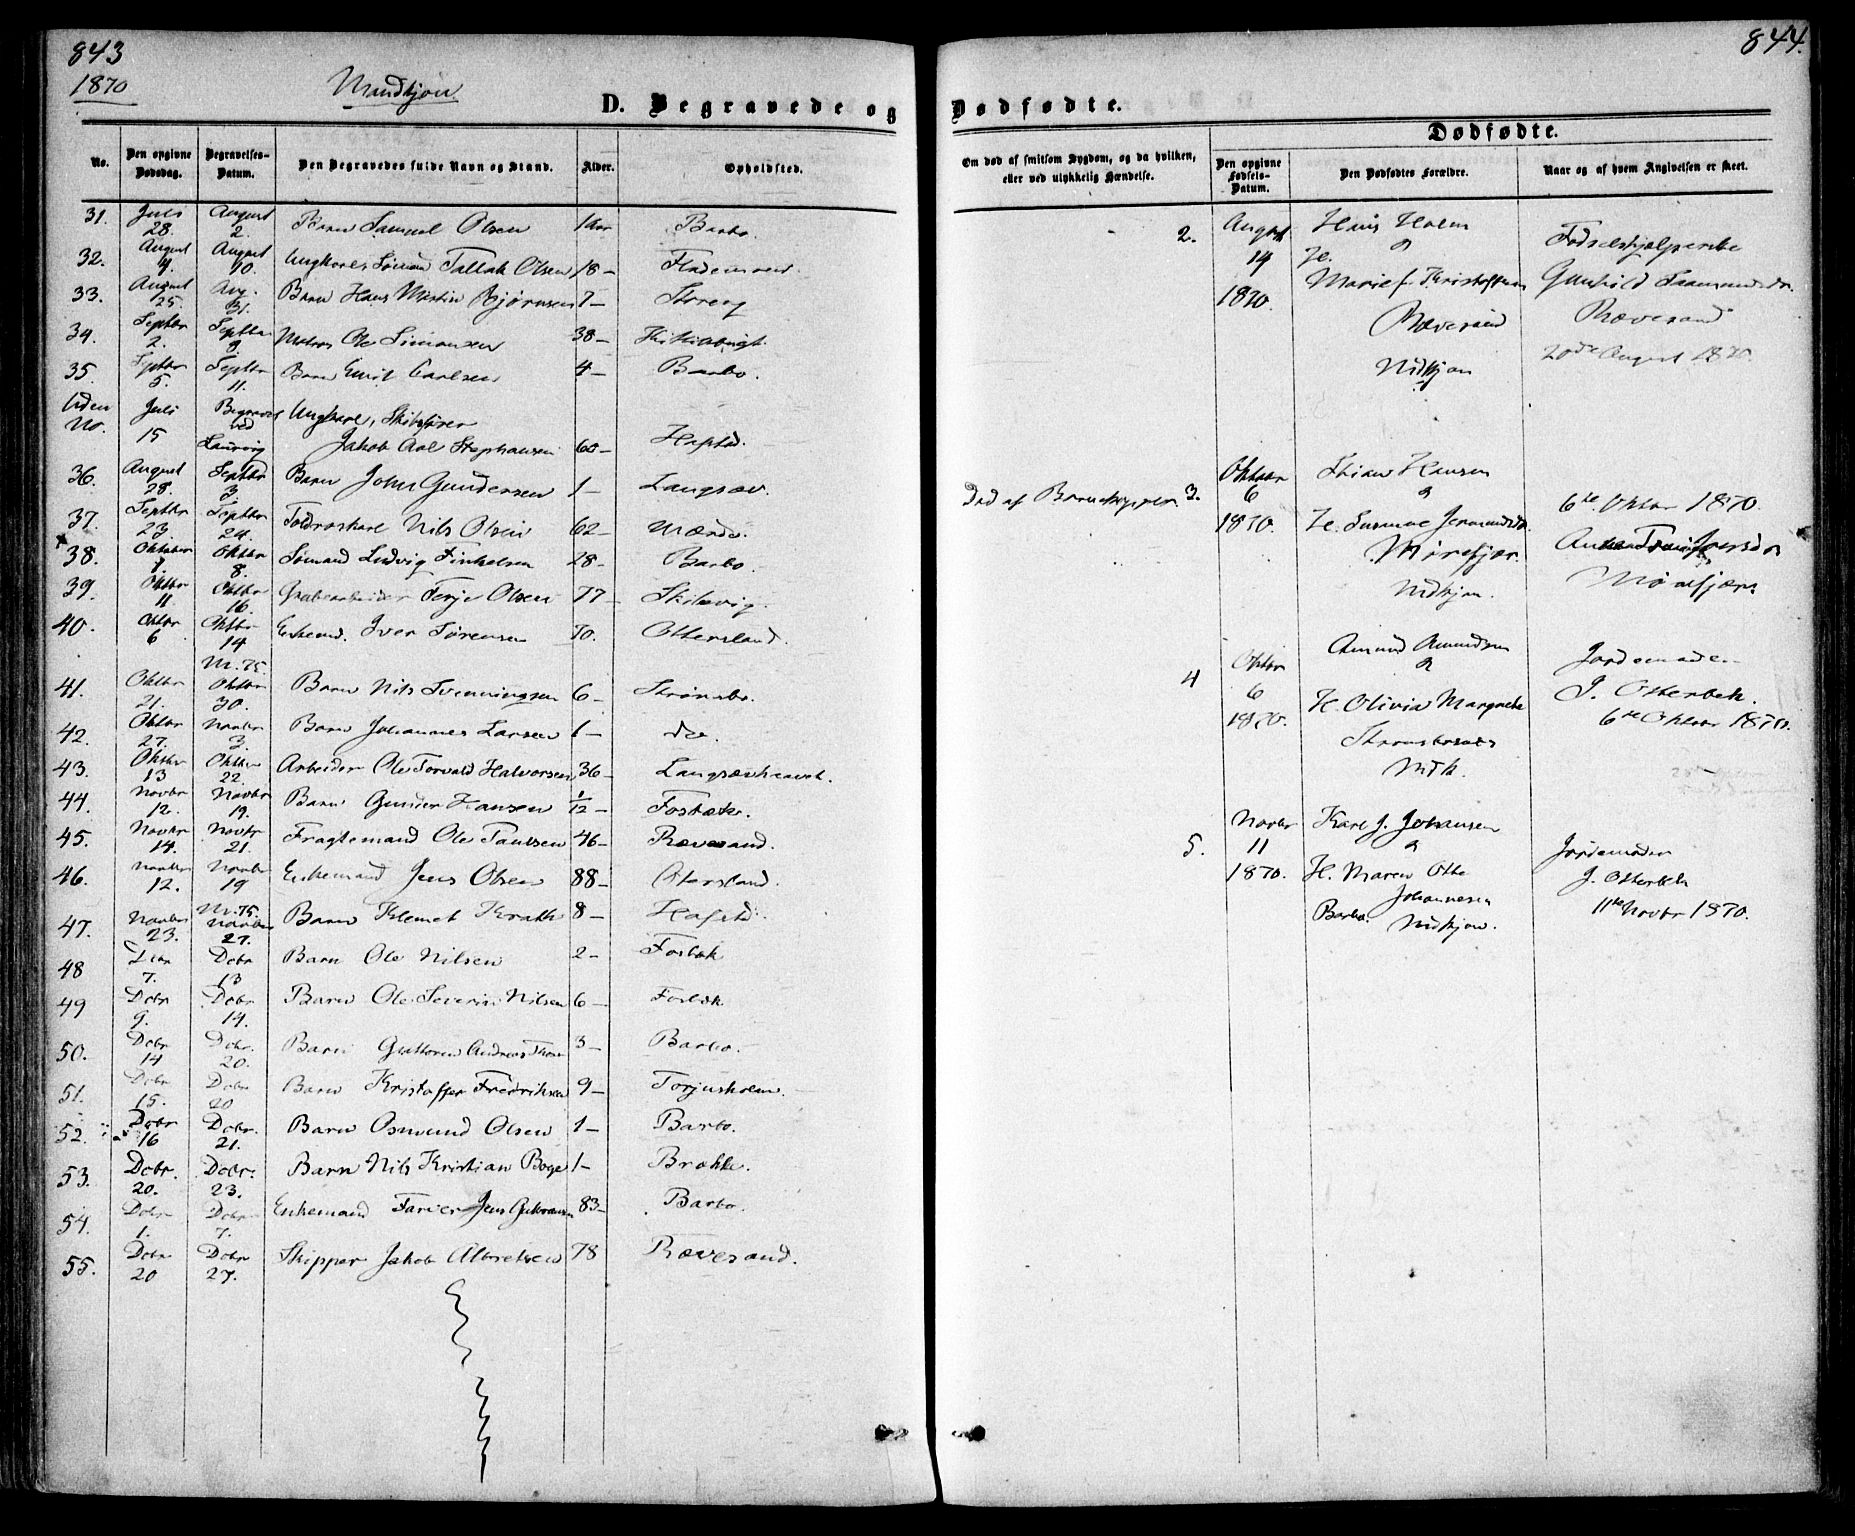 843
1870
Mandkjøn.
D. Begravede og
No.
Den opgivne Dødsdag.
Begravelses-Datum.
Den Begravedes fulde Navn og Stand.
Alder.
Opholdsted.
31. Juli 28. August 2. Barn Samuel Olsen 1 Aar Barbo.
32. August 4. August 10. Ungkarl Sømand Tallak Olsen 18 –
33. August 25. Aug. 31. Barn Hans Martin Bjørnsen 7 –
34. Septbr 2. Septbr 8. Matros Ole Simonsen 38 –
35. Septbr 5. Septbr 11. Barn Emil Carlsen 4 – Barbo.
Uden No. Juli 15 Begravet ved Laurvig Ungkarl, Skibsfører
Jakob Aal Stephansen 60 – Hafstd.
36. August 28. Septbr 3. Barn John Gundersen 1 – Langsæv.
37. Septbr 23. Septbr 24. Toldroskarl Nils Olsen 62 –
38. Oktober 1. Oktbr 8. Sømand Ludvig 28 – Barbo.
39. Oktbr 11. Oktbr 16. Terje Olsen 77 – Skilsvig.
40. Oktbr 6 Oktbr 14 Enkemd. Iver Sørensen 70. Ottersland.
M. 75.
41. Oktbr 21. Oktbr 30. Barn Nils Svenningsen 6 – Strømsbo.
42. Oktbr 27. Novbr 3. Barn Johannes Larsen 1 – do.
43. Oktbr 13 Oktbr 22. Arbeider Ole Torvald Halvorsen, 36 –
44. Novbr 12. Novbr 19. Barn Gunder Hansen 1/12 – Fosbæk.
45. Novbr 14. Novbr 21. Fragtemand Ole Taulsen 46 – Rævesand.
46. Novbr 12. Novbr 19 Enkemand Jens Olsen 88 – Ottersland.
M. 75.
47. Novbr 23. Novbr 27. Barn Klemet 8 – Hafstd.
48 Dcbr 7. Dcbr 13 Barn Ole Nilsen 2 – Fosbæk
49 Dcbr 9. Dcbr 14. Barn Ole Severin Nilsen 6 – Fosbæk.
50. Dcbr 14 Dcbr. 20. Barn Andreas 3 – Barbo.
51. Dcbr 15. Dcbr 20 Barn Kristoffer Fredriksen 9 – Torjusholm.
52. Dcbr 16 Dcbr. 21. Barn Osmund Olsen 1 – Barbo.
53. Dcbr. 20. Dcbr. 23. Barn Nils Kristian Boge 1 – Brække.
54. Dcbr 1. Dcbr 7. Enkemand Farver Jens 83 – Barbo.
55. Dcbr 20 Dcbr 27. Skipper Jakob Albretsen 78 Rævesand.
844.
Dødfødte.
Om død af smitsom Sygdom, og da hvilken, eller ved ulykkelig Hændelse.
Dødfødte.
Den opgivne Fødsels-Datum.
Den Dødfødtes Forældre.
Naar og af hvem Angivelsen er skeet.
2. August 14 1870. Hans Holm & H. Marie Kristoffersen Rævesand Mdkjøn
Fødselshjælperske Gunhild Rævesand 20de August 1870.
Død af
3. Oktober 6 1870. Hansen & H. Susanne Mørefjær. Mdkjøn.
6te Oktbr 1870. Mørefjær.
4 Oktbr 6 1870. Amund Amundsen & H. Olivia Margrethe Mdk.
Jordemoder J. Osterbek 6te Oktbr 1870.
5. Novbr 11 1870. Karl J. Johansen & H. Maren Otte Johannesen Barbo. Mdkjøn.
Jordemoder J. Osterbek 11te Novbr 1870.